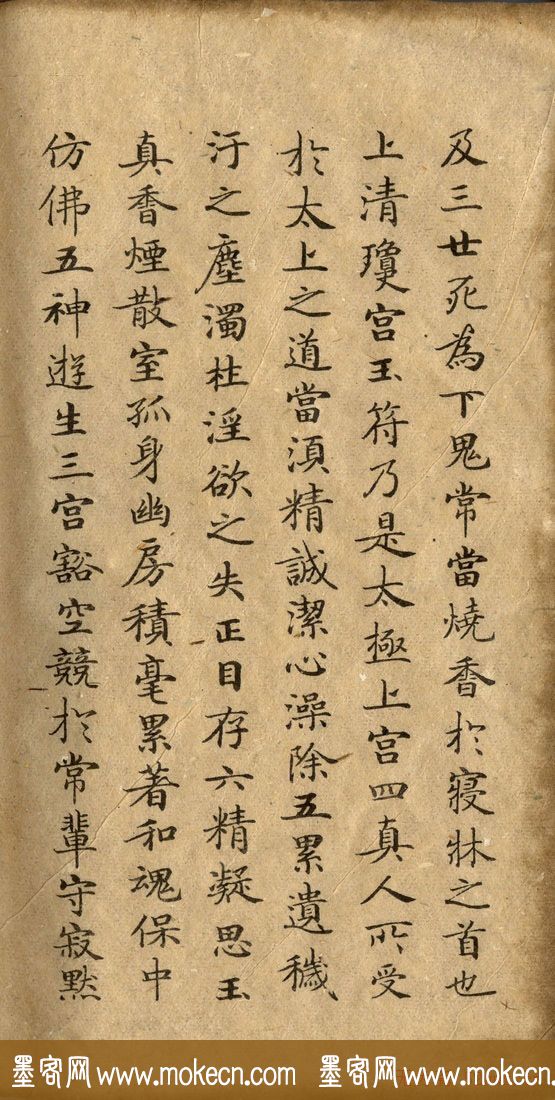 及三廿死為下鬼常當燒香於寢牀之首也
上清瓊宮玉符乃是太極上宮四真人所受
於太上之道當須精誠潔心澡除五累遺穢
汙之塵濁杜淫欲之失正目存六精凝思玉
真香煙散室孤身幽房積毫累著和魂保中
仿佛五神遊生三宮豁空競於常輩守寂默
墨客网 www.mokecn.com 墨客网 www.mokecn.com